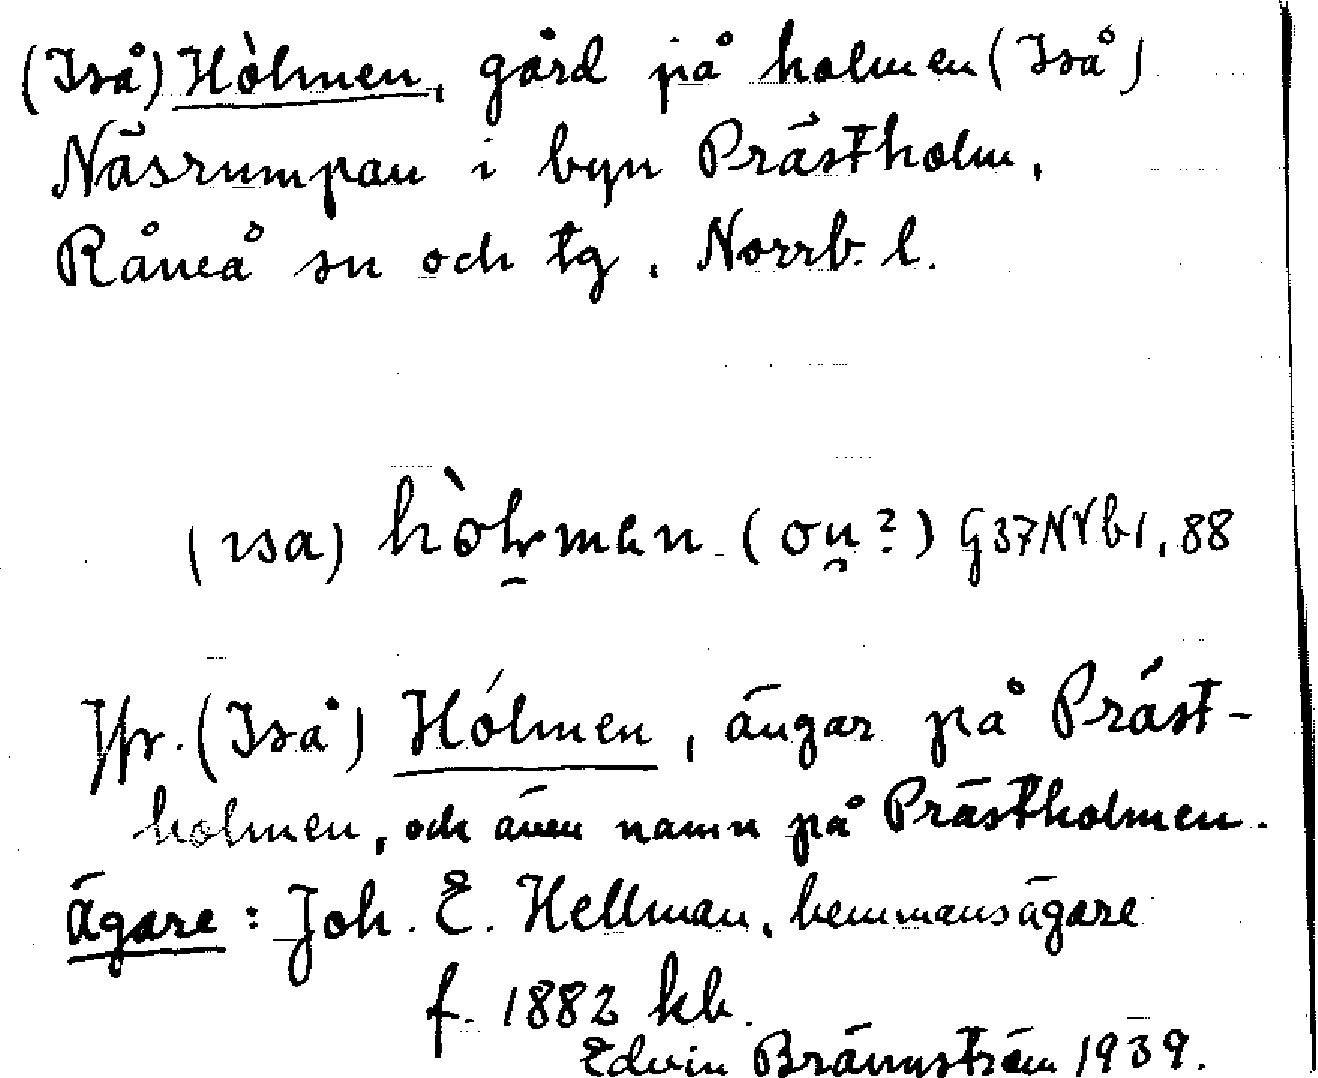 (Iså) Hòlmen, gård på holmen (Iså)
Näsrumpan i byn Prästholm,
Råneå sn och tg. Norrb. l.
(ısa) hòḷmən (oṷ?) G37NVb1, 88
Jfr. (Iså) Hólmen, ängar på Präst-
holmen, och även namn på Prästholmen.
ägare: Joh. E. Hellman, hemmansägare
f. 1882 kb.
Edvin Brännström 1939.